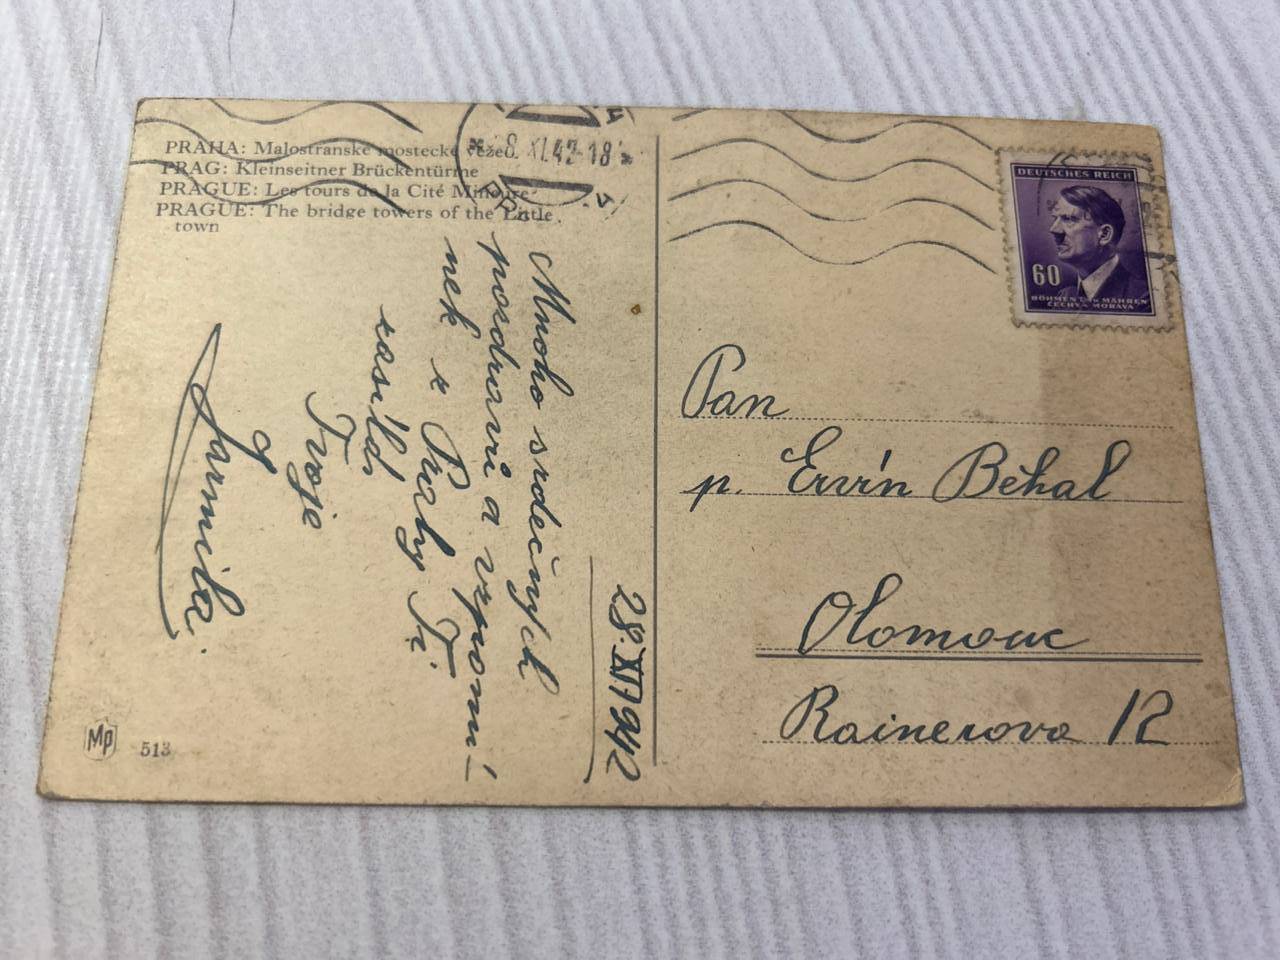 PRAHA: Malostranské mostecké věže.
PRAG: Kleinseitner Brückentürme
PRAGUE: Les tours de la Cité Mineure
PRAGUE: The bridge towers of the Little
town
8.XI.42-18
DEUTSCHES REICH
60
BÖHMEN U. MÄHREN
ČECHY A MORAVA
28.XI.1942
Mnoho srdečných
pozdravů a vzpomí-
nek z Prahy Ti
zasílá
Tvoje
Jarmila.
Pan
p. Ervín Běhal
Olomouc
Rainerova 12
Mp 513